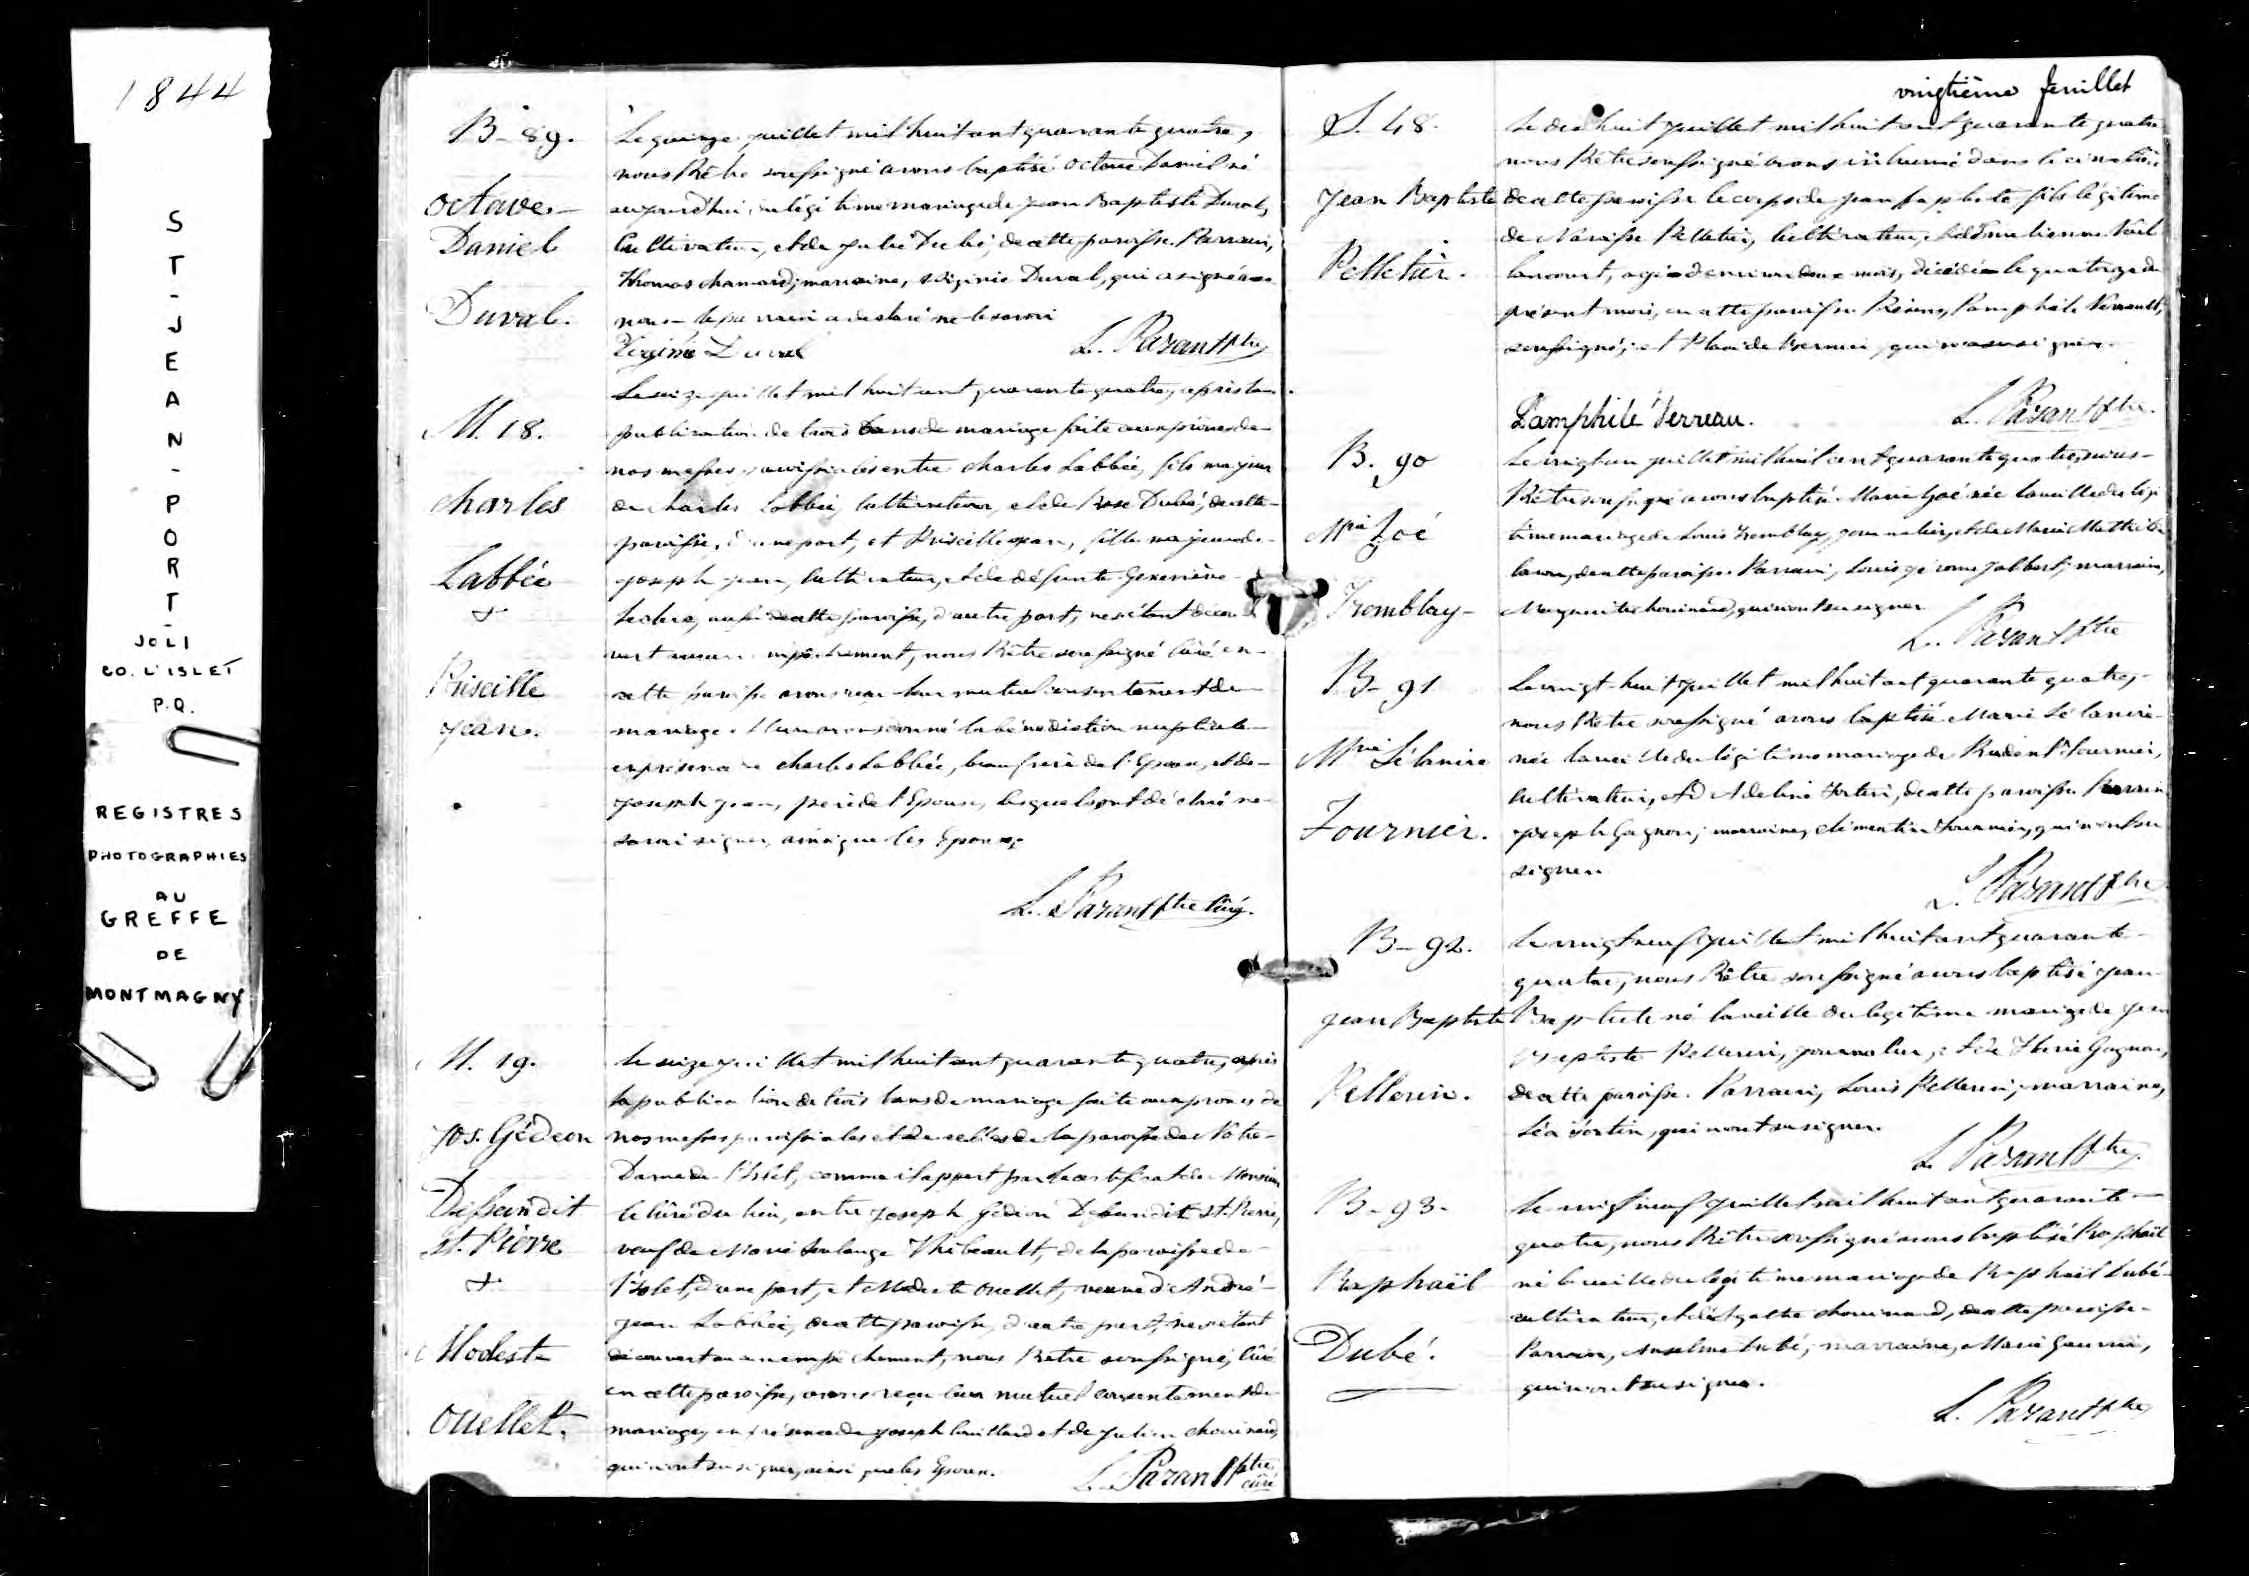 1844
S
T
-
J
E
A
N
-
P
O
R
T
-
JOLI
CO. L'ISLET
P.Q.
REGISTRES
PHOTOGRAPHIES
AU
GREFFE
DE
MONTMAGNY
B- 89.
Octave
Daniel
Duval.
Le quinze juillet mil huit cent quarante quatre,
nous Prêtre soussigné avons baptisé Octave Daniel né
aujourd'hui du légitime mariage de Jean Baptiste Duval,
Cultivateur, et de Julie Dubé, de cette paroisse. Parrain,
Thomas chamard; marraine, Virginie Duval, qui a signé avec
nous le parrain a déclaré ne le savoir
Virginie Duval L. Parant Ptre
M. 18.
charles
Labbée
&
Priscille
Jean.
Le seize juillet mil huit cent quarante quatre, après la
publication de trois bans de mariage faite aux prônes de
nos messes paroissiales entre Charles Labbée, fils majeur
de charles Labbée, cultivateur, et de Rose Dubé, de cette
paroisse, d'une part, et Priscille Jean, fille majeure de
Joseph Jean, Cultivateur, et de défunte Geneviève
aussi de cette paroisse, d'autre part, ne s'étant décou
vert aucun empêchement, nous Prêtre soussigné Curé en
cette paroisse avons reçu leur mutuel consentement de
mariage & leur avons donné la bénédiction nuptiale
en présence de charles Labbée, beau frère de l'Epoux, et de
Joseph Jean, père de l'Epouse, lesquels ont déclaré ne
savoir signer, ainsi que les Epoux.
L. Parant Ptre Curé.
M. 19.
Jos. Gédeon
Dessaindit
St. Pierre
&
Modeste
Ouellet.
Le seize juillet mil huit cent quarante quatre, après
la publication de trois bans de mariage faite aux prônes de
nos messes paroissiales et de celles de la paroisse de Notre
Dame de l'Islet, comme il appert par le certificat de Monsieur
le Curé du lieu, entre Joseph Gédéon St. Pierre,
veuf de Marie Solange Thibeault, de la paroisse de
l'Islet, d'une part, et Modeste Ouellet, veuve de André
Jean Labbée, de cette paroisse, d'autre part, ne s'étant
découvert aucun empêchement, nous Prêtre soussigné, Curé
en cette paroisse, avons reçu leur mutuel consentement de
mariage, en présence de Joseph et de Julien Chouinard,
qui n'ont su signer, ainsi que les Epoux. L. Parant Ptre
curé
vingtième feuillet
S. 48.
Jean Baptiste
Pelletier.
Le dix huit juillet mil huit cent quarante quatre
nous Prêtre soussigné avons inhumé dans le cimetière
de cette paroisse le corps de Jean Baptiste fils légitime
de Narcisse Pelletier, Cultivateur,
agé d'environ deux mois, décédé le quatorze du
présent mois, en cette paroisse. Présens, Pamphile Verreault,
soussigné; et Placide Bernier, qui n'a su signer.
Pamphile Verreau. L. Parant Ptre.
B. 90
Mrie Zoé
Tremblay
Le vingt un juillet mil huit cent quarante quatre, nous
Prêtre soussigné avons baptisé Marie Zoé née la veille du légi
time mariage de Louis Tremblay, journalier, et de Marie Mathilde
Caron, de cette paroisse. Parrain, Louis Jérome Jalbert; marraine,
Marguerite Chouinard, qui n'ont su signer.
L. Parant Ptre
B- 91
Mrie Sélanire
Fournier.
Le vingt huit juillet mil huit cent quarante quatre,
nous Prêtre soussigné avons baptisé Marie Sélanire
née la veille du légitime mariage de Prudent Fournier,
Cultivateur, et d'Adeline Fortin, de cette paroisse. Parrain
Joseph Gagnon; marraine, Clémentine Fournier, qui n'ont su
signer.
L. Parant Ptre
B- 92.
Jean Baptiste
Pellerin.
Le vingt neuf juillet mil huit cent quarante
quatre, nous Prêtre soussigné avons baptisé Jean
Baptiste né la veille du légitime mariage de Jean
Baptiste Pellerin, journalier, et de Gagnon,
de cette paroisse. Parrain, Louis Pellerin; marraine,
Léa Fortin, qui n'ont su signer.
L. Parant Ptre
B- 93.
Raphaël
Dubé.
Le vingt neuf juillet mil huit cent quarante
quatre, nous Prêtre soussigné avons baptisé Raphaël
né la veille du légitime mariage de Raphaël Dubé
cultivateur, et d'Agathe Chouinard, de cette paroisse.
Parrain, Anselme Dubé; marraine, Marie
qui n'ont su signer.
L. Parant Ptre